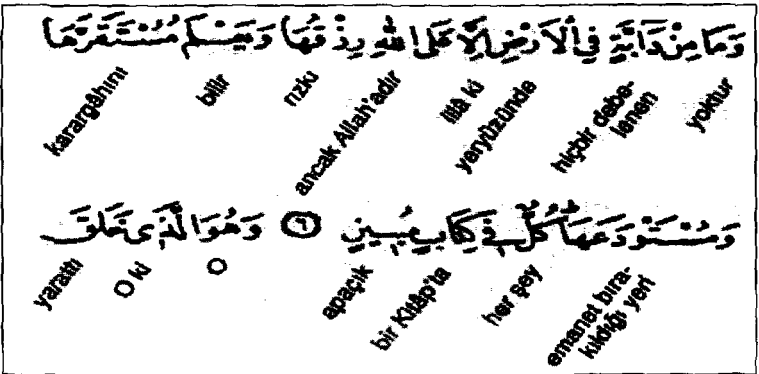 وَمَا مِنْ دَابَّةٍ فِي الْاَرْضِ اِلَّا عَلَى اللّٰهِ رِزْقُهَا وَيَعْلَمُ مُسْتَقَرَّهَا
yoktur hiçbir debe-lenen yeryüzünde illâ ki ancak Allah'adır rızkı bilir karargâhını
وَمُسْتَوْدَعَهَا كُلٌّ فِي كِتَابٍ مُبِينٍ ﴿٦﴾ وَهُوَ الَّذِي خَلَقَ
emanet bıra-kıldığı yeri her şey bir Kitâp'ta apaçık O O ki yarattı